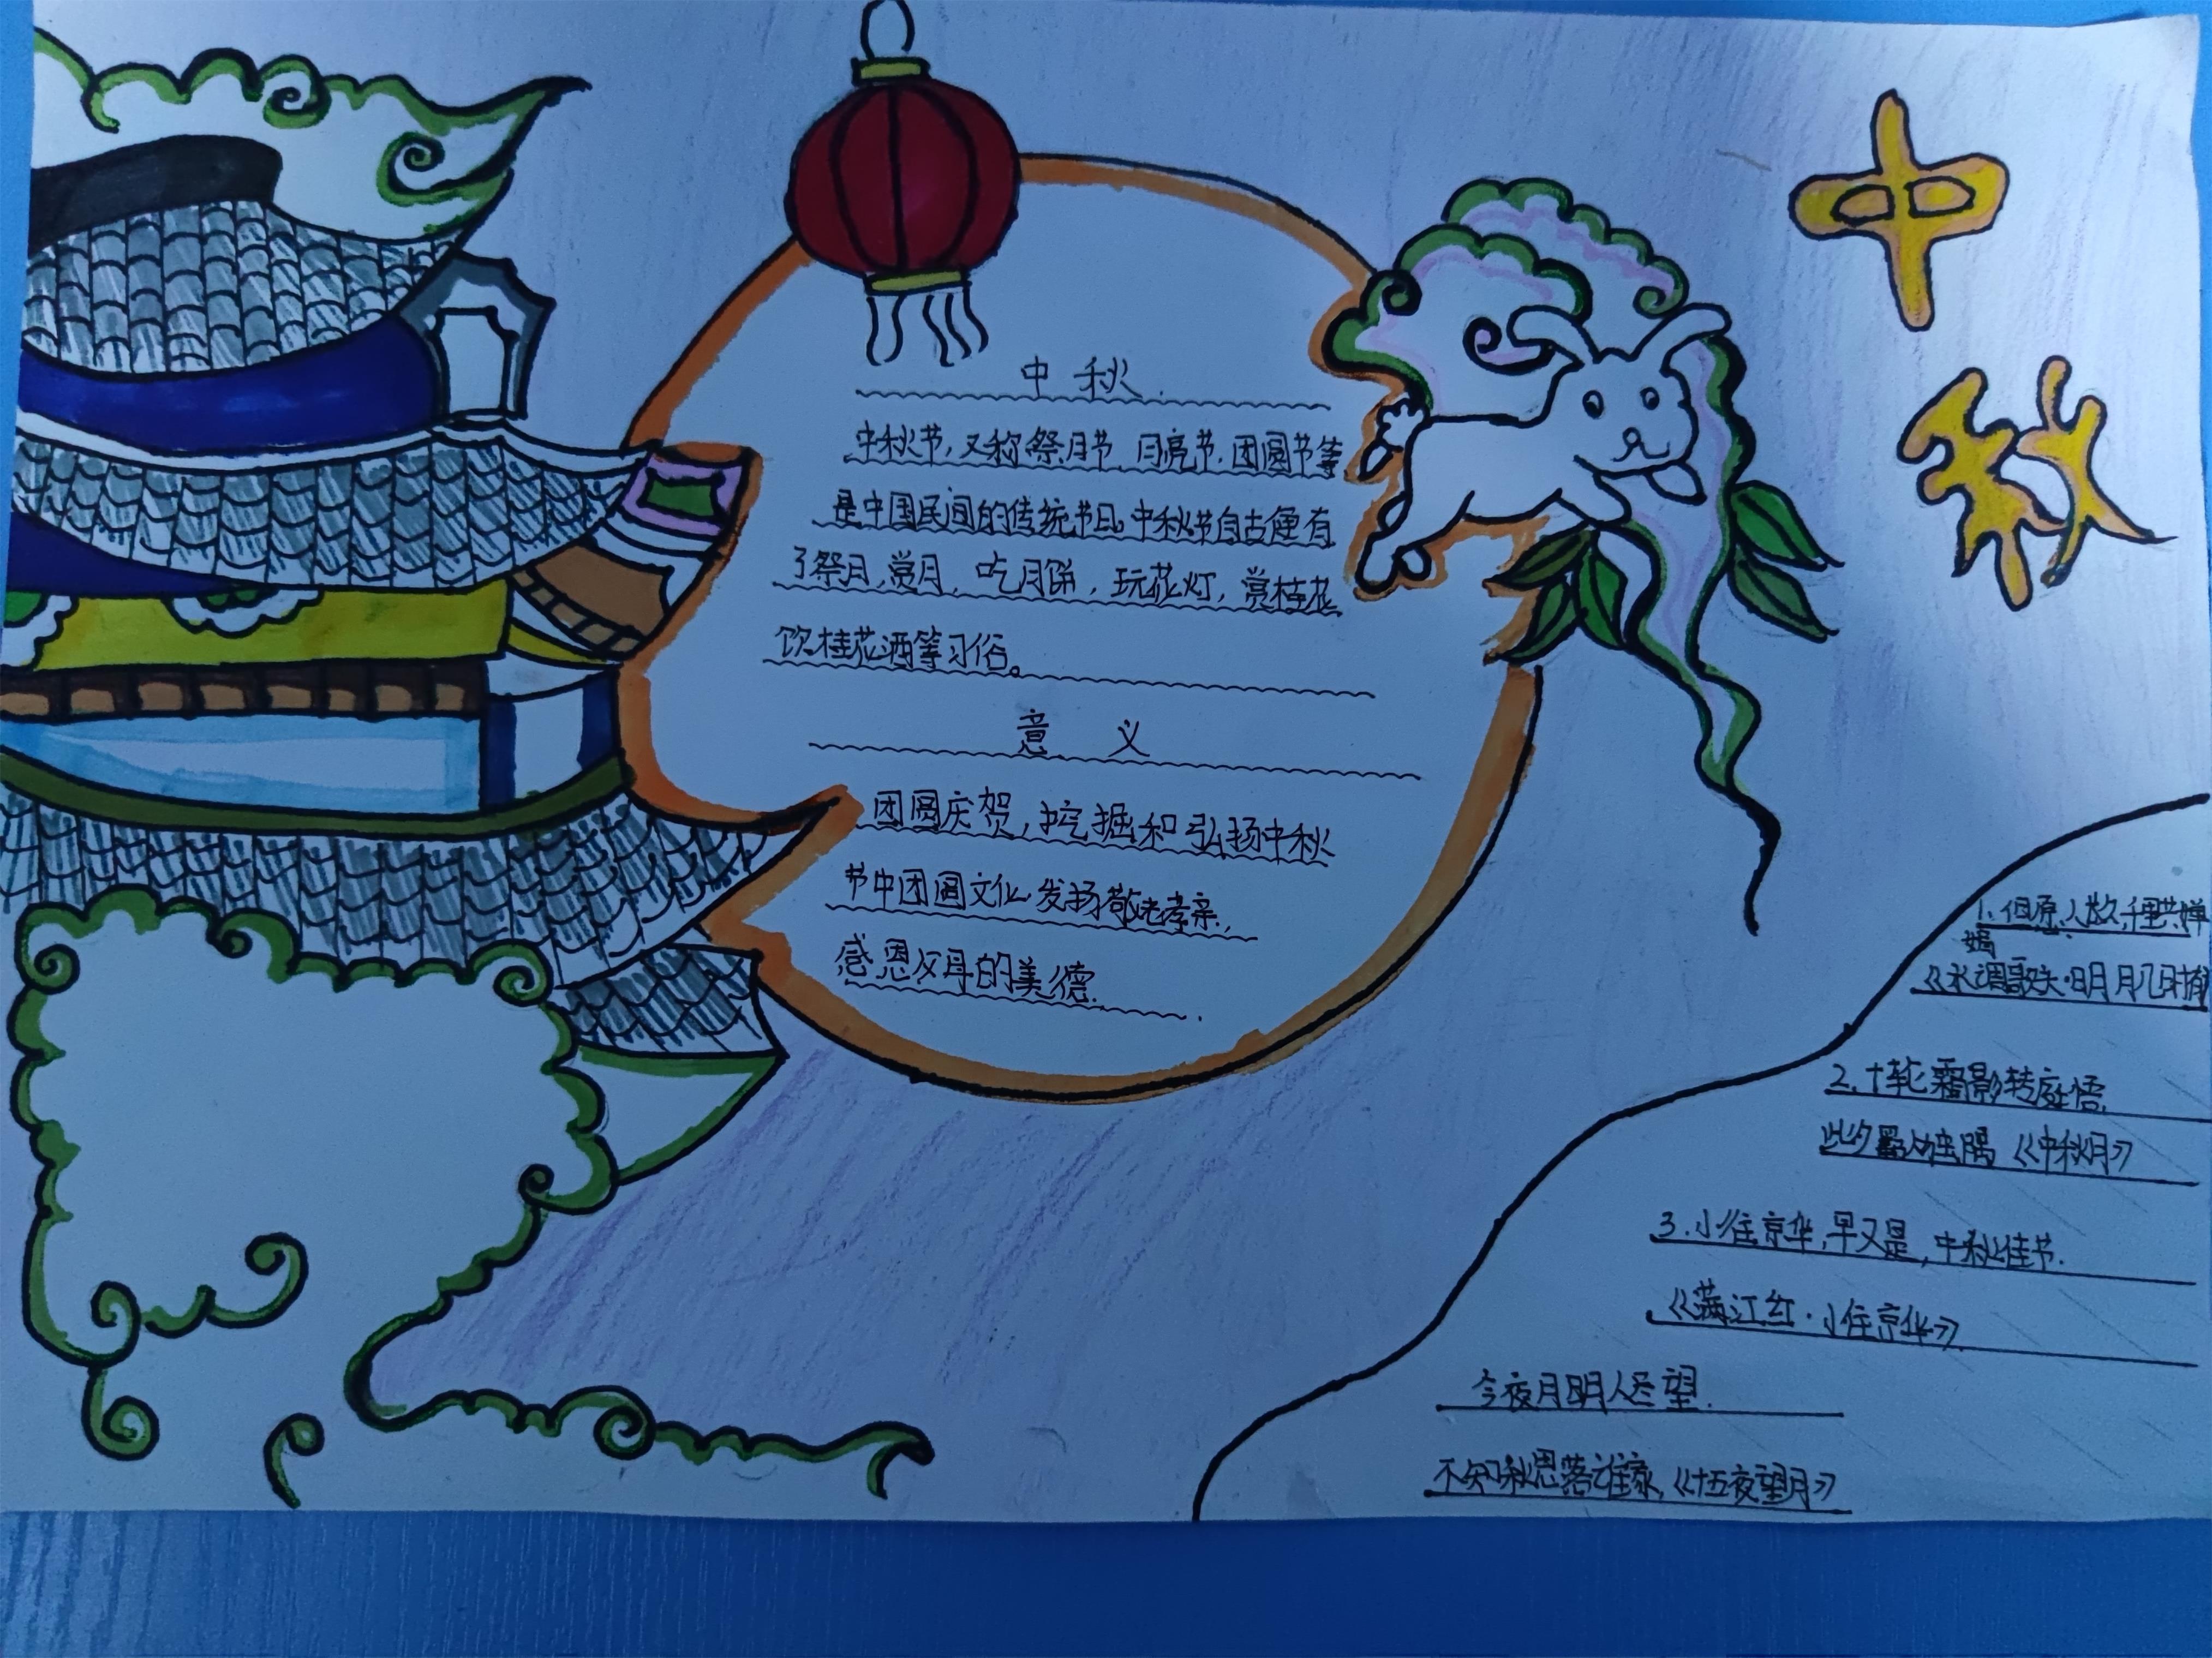 中秋
中秋
中秋节,又称祭月节 月亮节.团圆节等
是中国民间的传统节日,中秋节自古便有
了祭月,赏月,吃月饼,玩花灯,赏桂花
饮桂花酒等习俗。
意义
团圆庆贺,挖掘和弘扬中秋
节中团圆文化.发扬敬老孝亲,
感恩父母的美德.
1.但愿人长久,千里共婵
娟
《水调歌头·明月几时有
2.十轮霜影转庭梧
此夕羁人独向隅《中秋月》
3.小住京华,早又是,中秋佳节.
《满江红·小住京华》
今夜月明人尽望.
不知秋思落谁家,《十五夜望月》